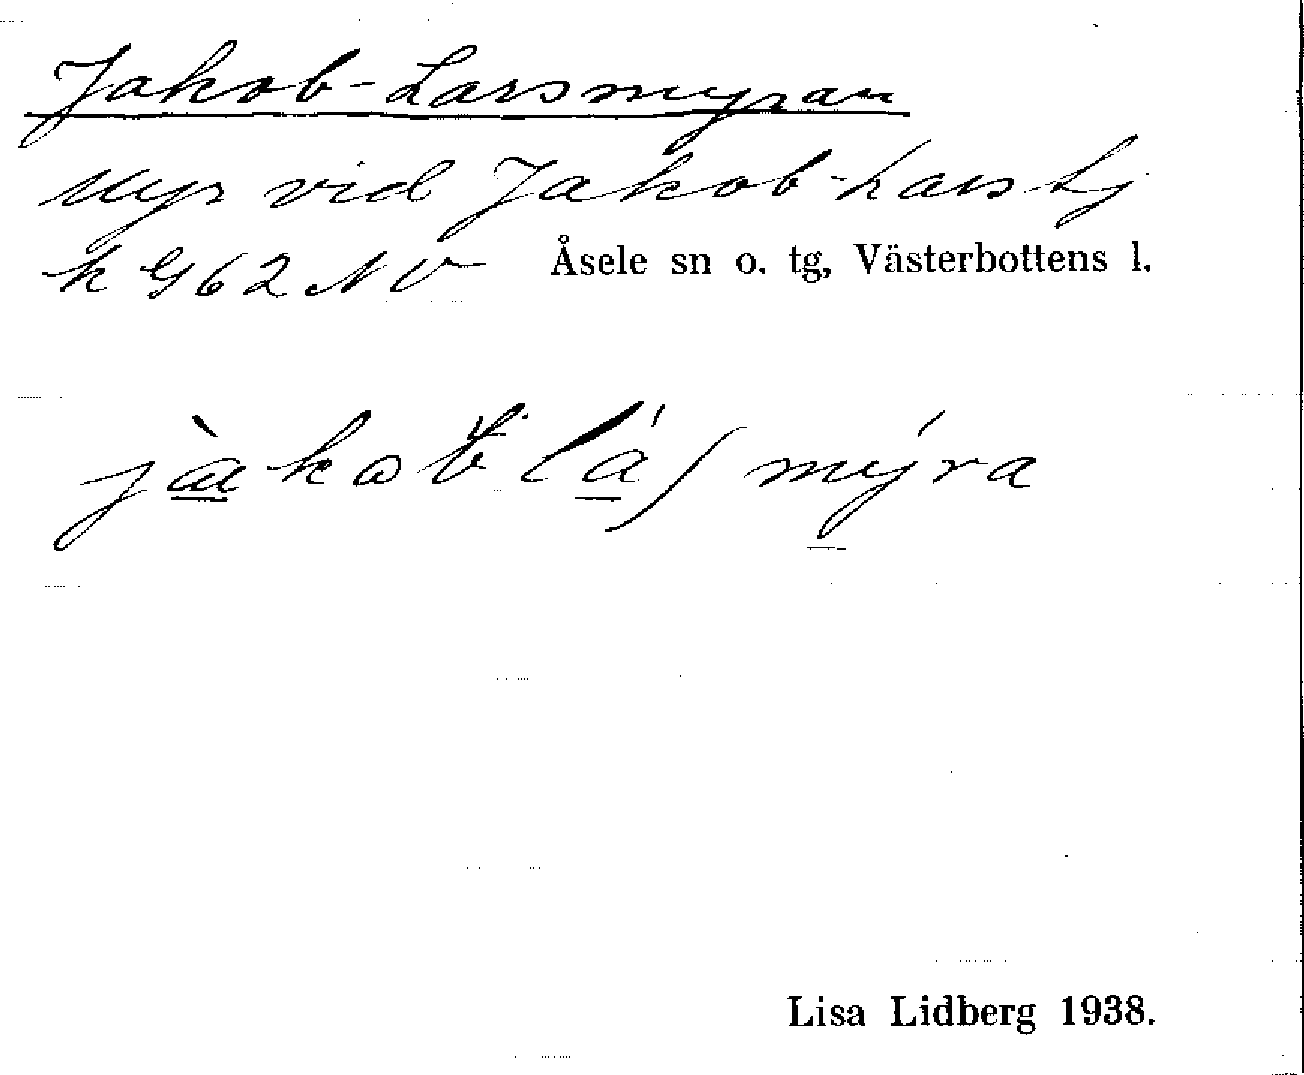 Jakob-Larsmyran
Myr vid Jakob-Larstj
k G62 NV Åsele sn o. tg, Västerbottens l.
Lisa Lidberg 1938.